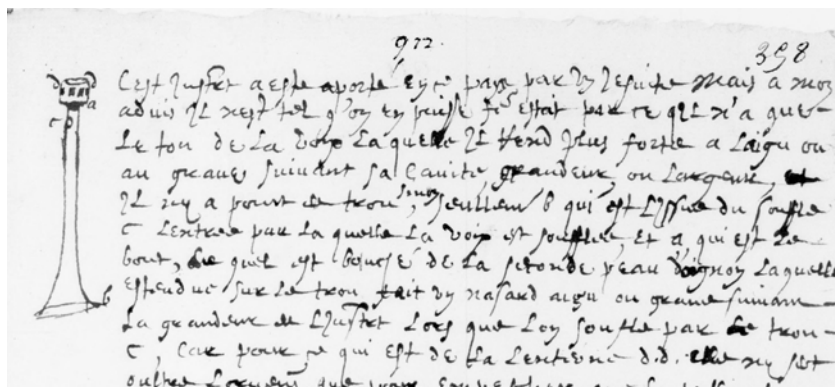 922.
398
Cest Instrt a este aporté en ce pays par un Jesuite Mais a mon
aduis Il nest tel qu'on en puisse fe estat par ce qIl n'a que
Le ton de La voix Laquelle Il rend plus forte a Laigu ou
au graue suiuant sa Cauité, grandeur ou Largeur, et
Il ny a point de trou, sinon seullemt b qui est L'Issue du souffle
C Lentree par La quelle La voix est soufflée, Et a qui est Le
bout, Le quel est bousché de La seconde peau doignon Laquelle
estendue sur Le trou fait un nasard aigu ou graue suiuant
La grandeur de L'Instrt Lors que Lon souffle par Le trou
C, Car pour ce qui est de La Lenterne d.d. elle ny sert
oultre Lornemt que pour
d
d
a
c
b